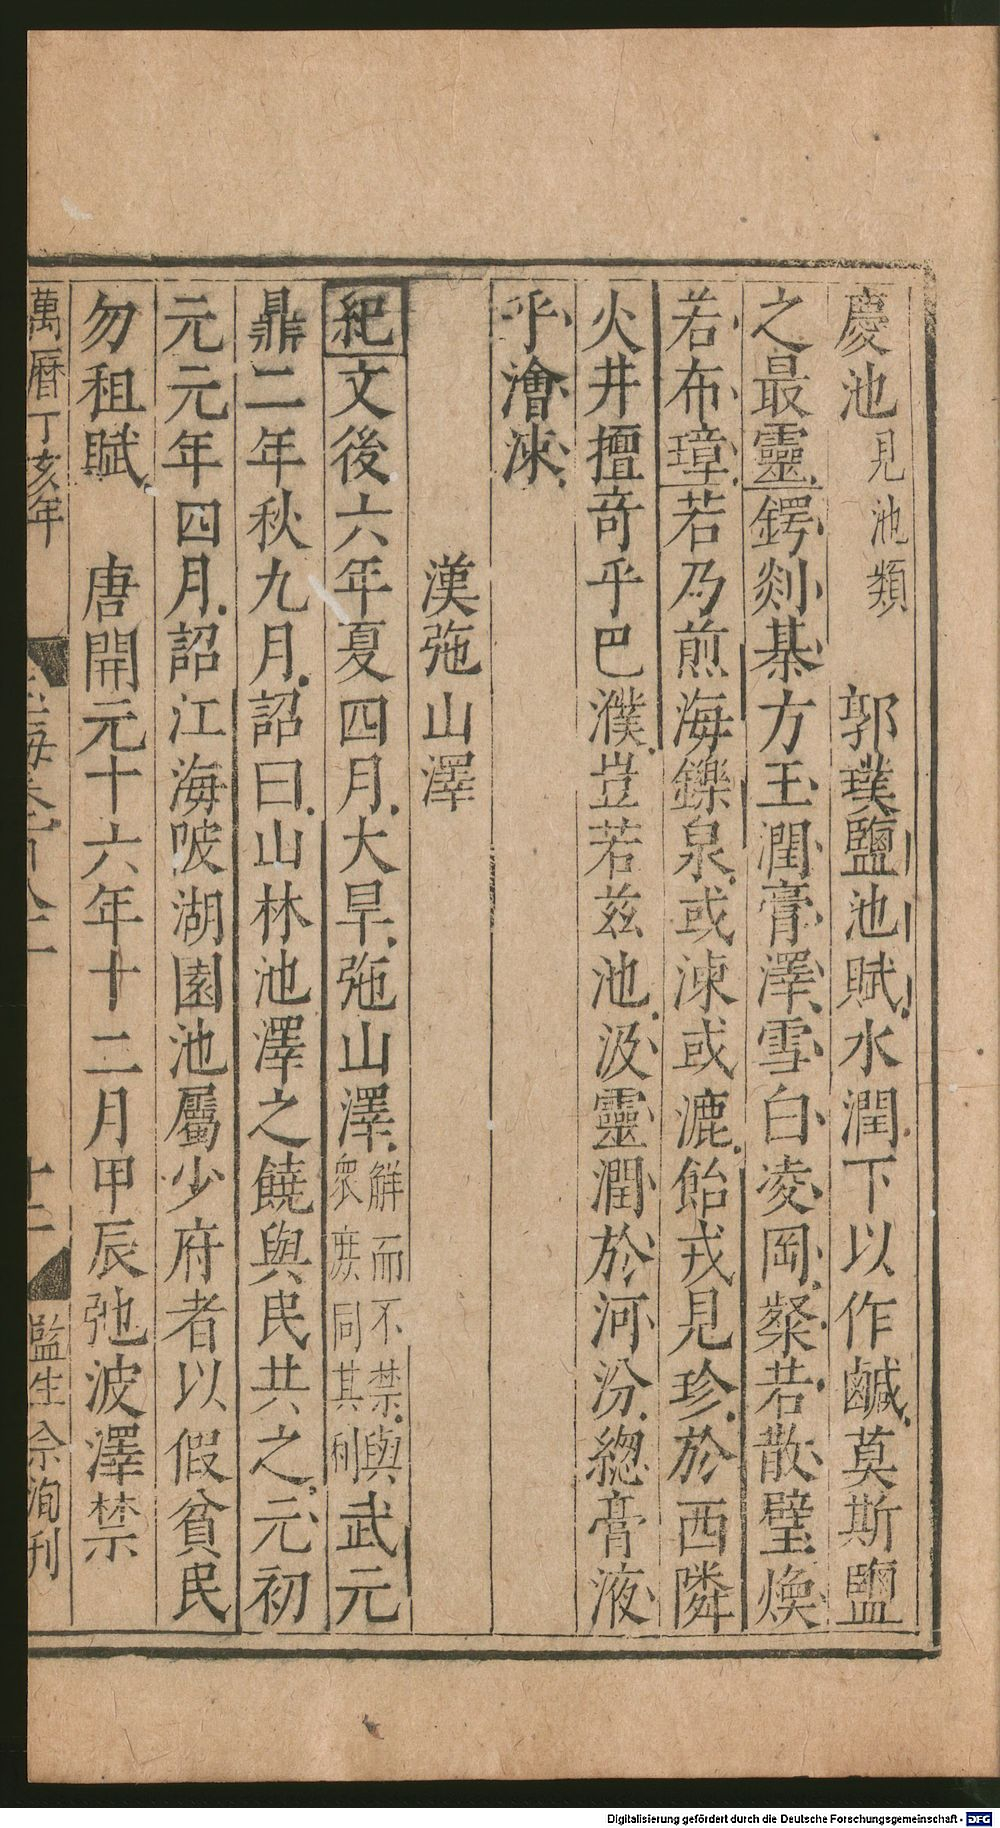 慶池見池類　郭璞鹽池賦水潤下以作鹹莫斯鹽
之最靈鍔剡棊方玉潤膏澤雪白凌岡粲若散璧煥
若布璋若乃煎海鑠泉或凍或漉飴戎見珍於西隣
火井擅竒乎巴濮豈若兹池汲靈潤於河汾緫膏液
乎澮涑
漢㢮山澤
紀文後六年夏四月大旱㢮山澤解而不禁與衆庶同其利武元
鼎二年秋九月詔曰山林池澤之饒與民共之元初
元元年四月詔江海陂湖園池屬少府者以假貧民
勿租賦　唐開元十六年十二月甲辰弛波澤禁
萬曆丁亥年　玉海卷一百八十二　十二　監生佘洵刊
Digitalisierung gefördert durch die Deutsche Forschungsgemeinschaft - DFG